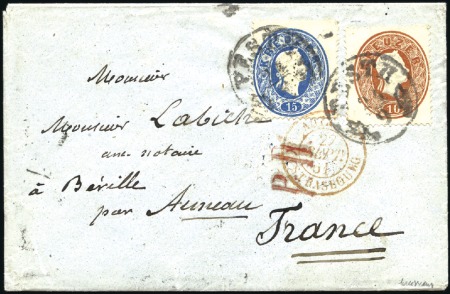 KREUZER
15
10
Monsieur
Monsieur Labiche
anc. notaire
à Béville
par Auneau
France
P.D.
STRASBOURG